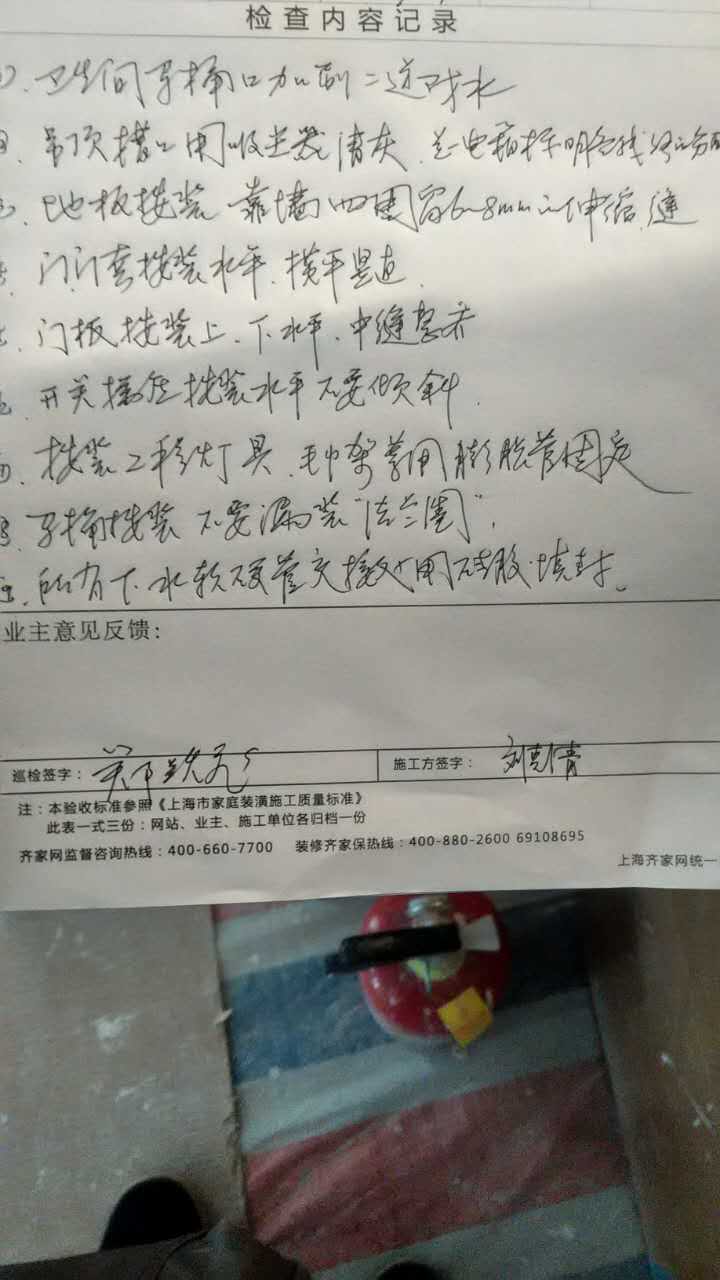 检查内容记录
卫生间马桶口加刷二道防水
吊顶槽口用吸尘器清灰、总电箱标明各线路
地板按装 靠墙四周留6-8mm的伸缩缝
门、门套按装水平、横平竖直
门板按装上、下水平、中缝
开关插座按装水平不要倾斜
按装 灯具、毛巾架等用膨胀管固定
马桶按装 不要漏装“法兰圈”。
所有下水软硬管交接处用硅胶填封。
业主意见反馈：
巡检签字：
施工方签字：
注：本验收标准参照《上海市家庭装潢施工质量标准》
此表一式三份：网站、业主、施工单位各归档一份
齐家网监督咨询热线：400-660-7700 装修齐家保热线：400-880-2600 69108695
上海齐家网统一